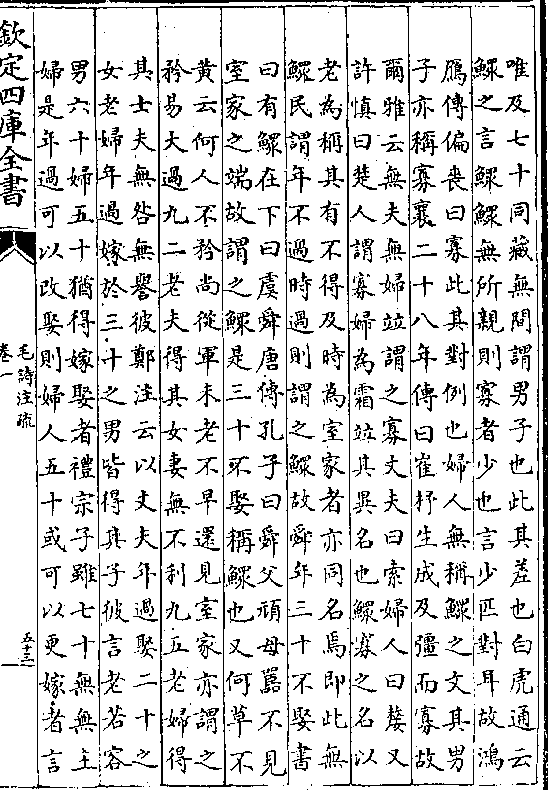 唯及七十同藏無間謂男子也此其差也白虎通云
鰥之言鰥鰥無所親則寡者少也言少匹對耳故鴻
鴈傳偏喪曰寡此其對例也婦人無稱鰥之文其男
子亦稱寡襄二十八年傳曰崔杼生成及彊而寡故
爾雅云無夫無婦竝謂之寡丈夫曰索婦人曰嫠又
許慎曰楚人謂寡婦為霜竝其異名也鰥寡之名以
老為稱其有不得及時為室家者亦同名焉即此無
鰥民謂年不過時過則謂之鰥故舜年三十不娶書
曰有鰥在下曰虞舜唐傳孔子曰舜父頑母嚚不見
室家之端故謂之鰥是三十不娶稱鰥也又何草不
黄云何人不矜尚從軍未老不早還見室家亦謂之
矜易大過九二老夫得其女妻無不利九五老婦得
其士夫無咎無譽彼鄭注云以丈夫年過娶二十之
女老婦年過嫁於三十之男皆得其子彼言老若容
男六十婦五十猶得嫁娶者禮宗子雖七十無無主
婦是年過可以改娶則婦人五十或可以更嫁者言
欽定四庫全書
毛詩注疏
卷一
五十三